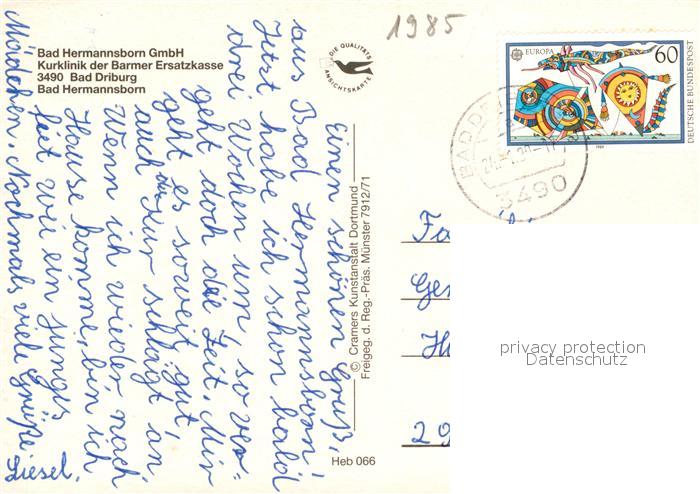 1985
Bad Hermannsborn GmbH
Kurklinik der Barmer Ersatzkasse
3490 Bad Driburg
Bad Hermannsborn
DIE QUALITÄTS
ANSICHTSKARTE
EUROPA
60
DEUTSCHE BUNDESPOST
1989
3490
Einen schönen Gruß,
aus Bad Hermannsborn!
Jetzt habe ich schon bald
drei Wochen um, so ver=
geht doch die Zeit. Mir
geht es soweit gut,
auch die Kur schlägt an
Wenn ich wieder nach
Hause komme, bin ich
fit wie ein junges
Mädchen. Nochmals viele Grüße
Liesel.
© Cramers Kunstanstalt Dortmund
Freigeg. d. Reg.-Präs. Münster 7912/71
Heb 066
Fa
Ge
H
29
privacy protection
Datenschutz